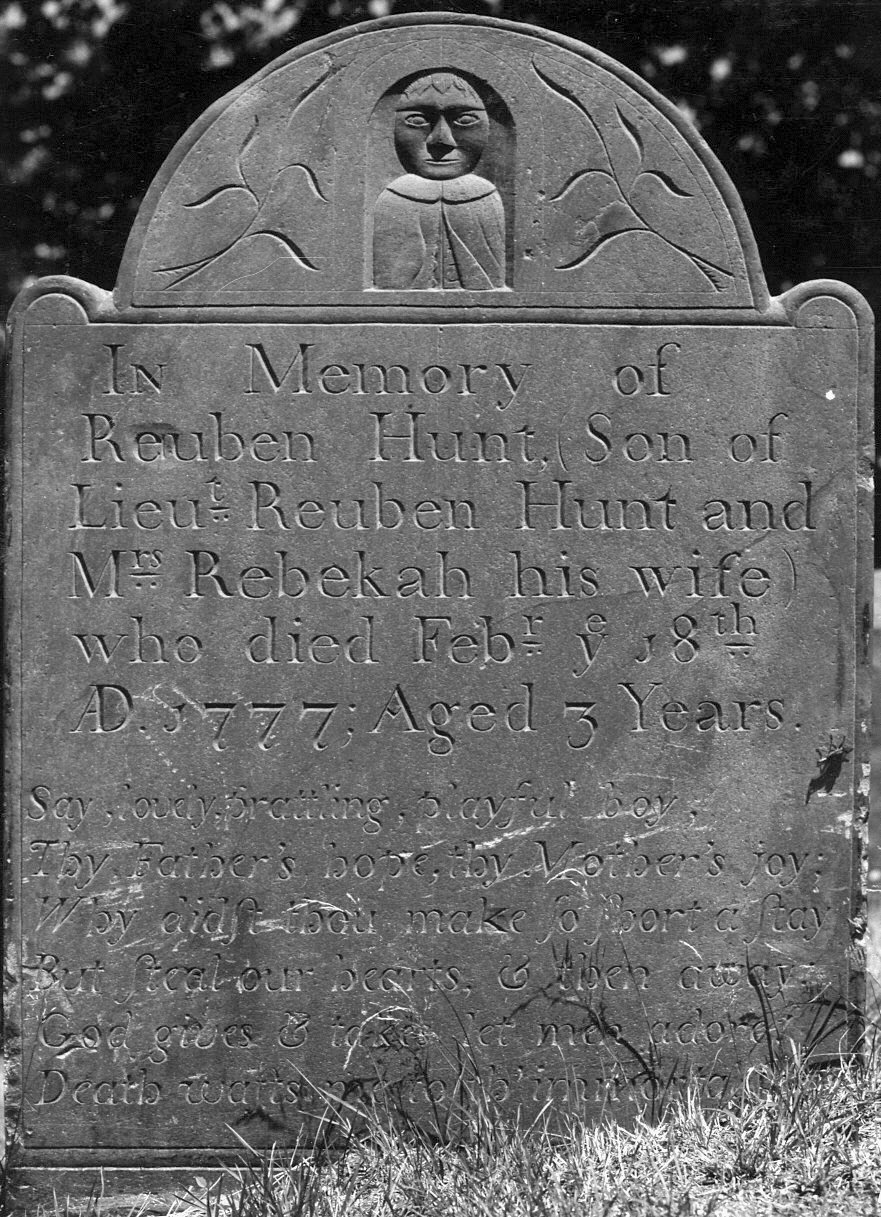 In Memory of
Reuben Hunt, (Son of
Lieut. Reuben Hunt and
Mrs. Rebekah his wife)
who died Febr. ye 18th.
AD. 1777; Aged 3 Years.
Say, lovely, prattling, playful boy,
Thy Father's hope, thy Mother's joy;
Why didſt thou make ſo ſhort a ſtay
But ſteal our hearts, & then away;
God gives & takes let men adore
Death waits me to th'